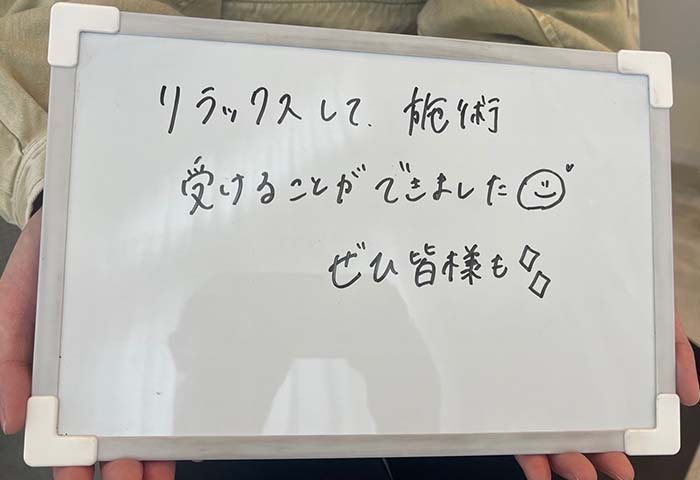 リラックスして、施術
受けることができました
ぜひ皆様も